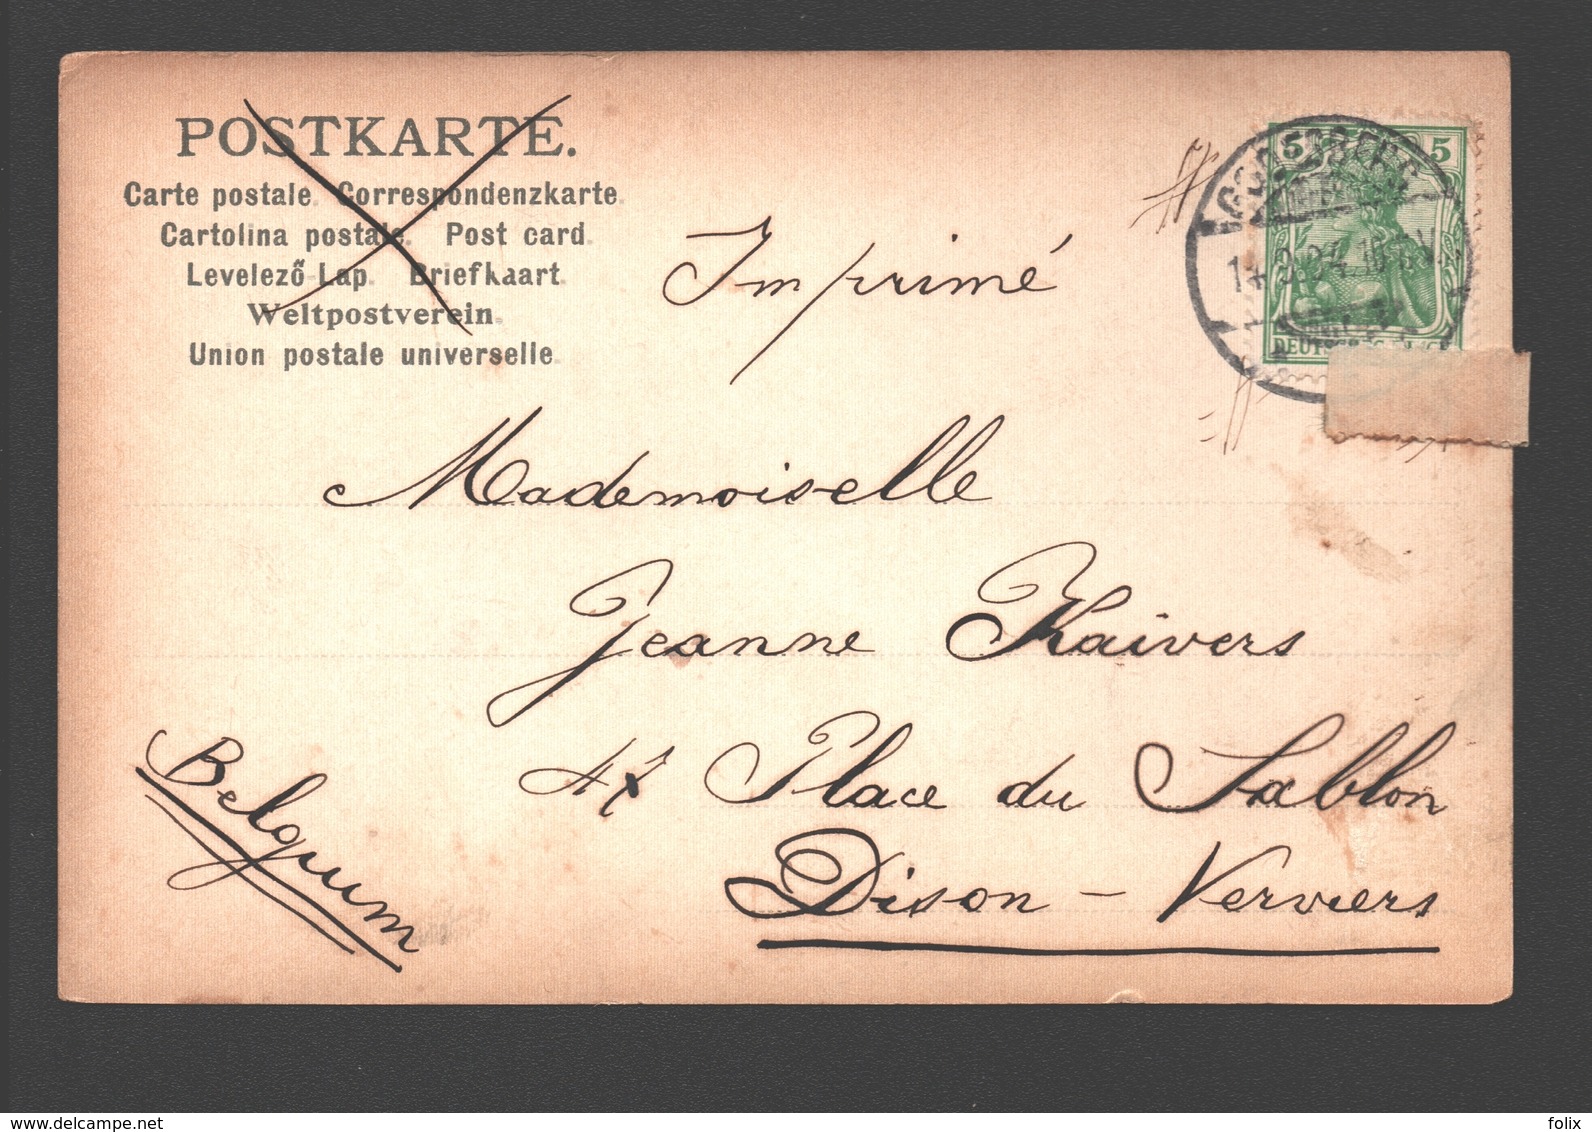 POSTKARTE.
Carte postale. Correspondenzkarte.
Cartolina postale. Post card.
Levelező-Lap. Briefkaart.
Weltpostverein.
Union postale universelle.
Imprimé
5 5
GODESBERG
DEUTSCHES REICH
Mademoiselle
Jeanne Kaivers
47 Place du Sablon
Dison - Verviers
Belgium
delcampe.net
folix